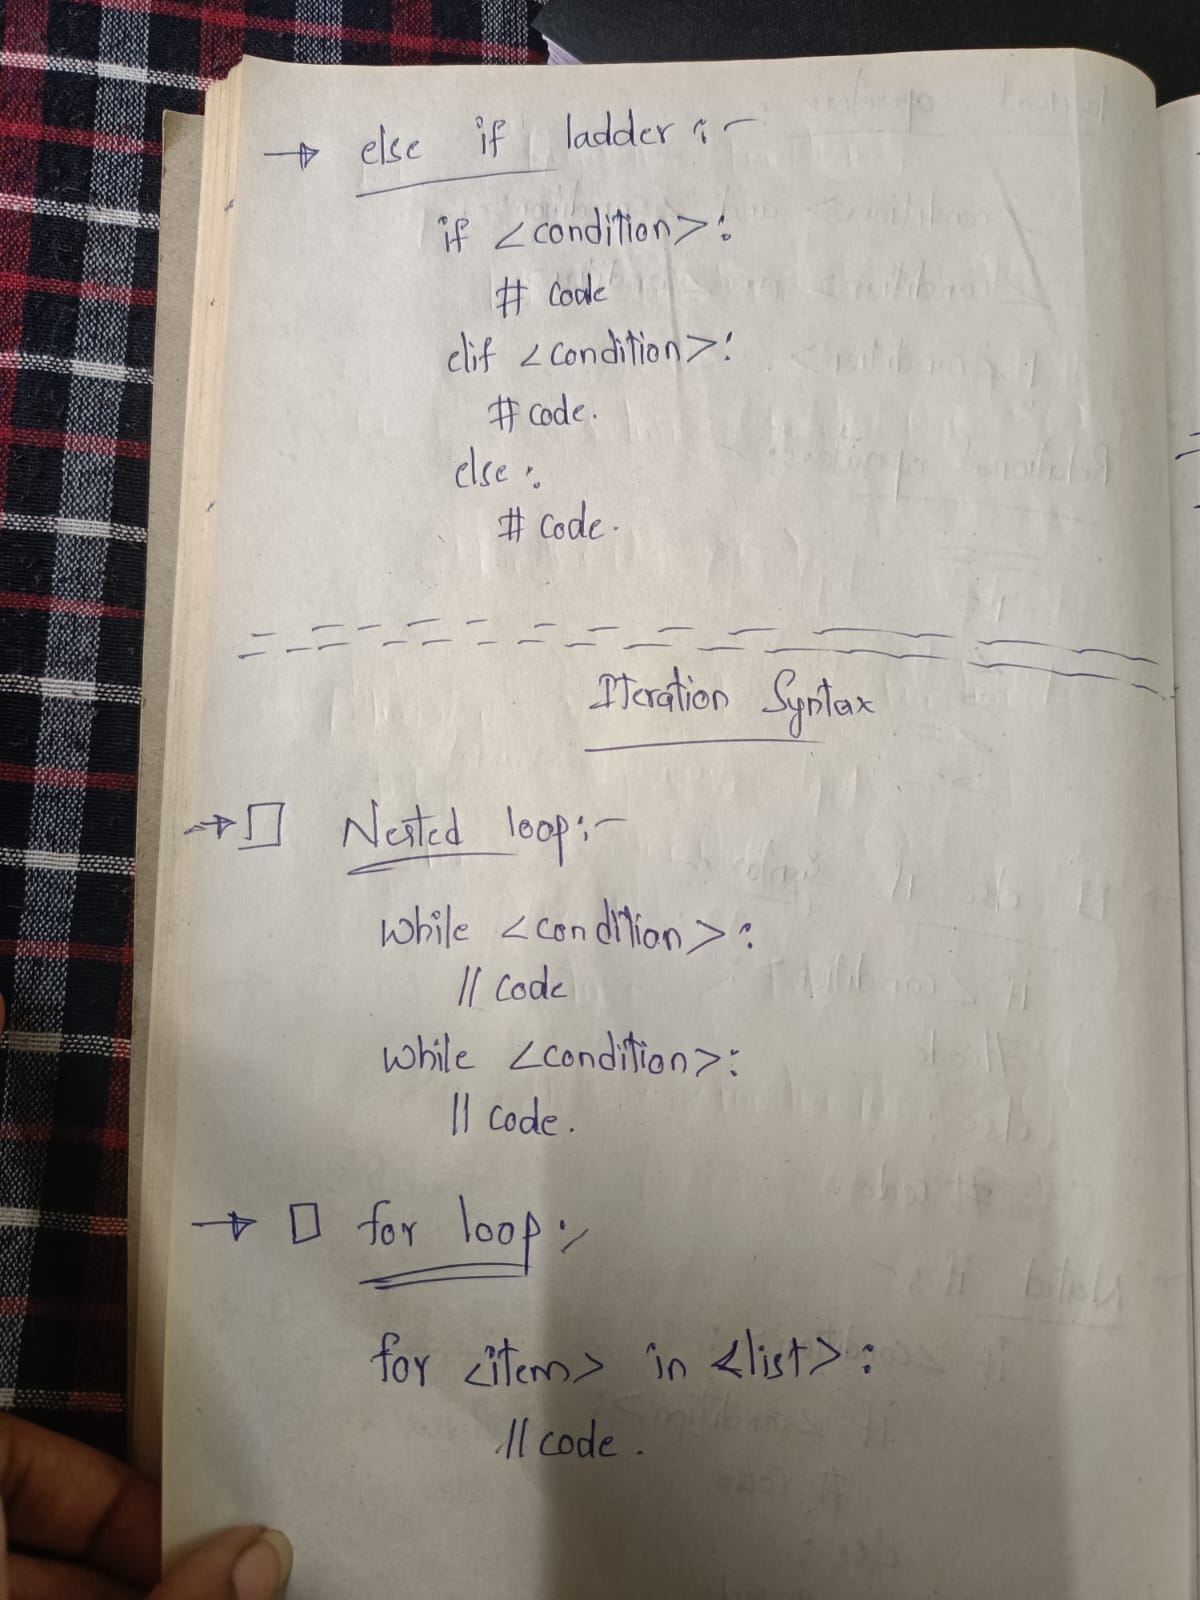 → else if ladder :-
if <condition>:
# code
elif <condition>:
# code.
else:
# code.
Iteration Syntax
→ □ Nested loop:-
while <condition>:
// code
while <condition>:
// code.
→ □ for loop:-
for <item> in <list>:
// code.